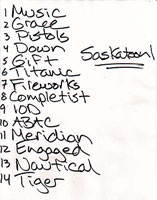 1 Music
2 Grace
3 Pistols
4 Down
5 Gift
6 Titanic
7 Fireworks
8 Completist
9 IOD
10 ABAC
11 Meridian
12 Engaged
13 Nautical
14 Tiger
Saskatoon!